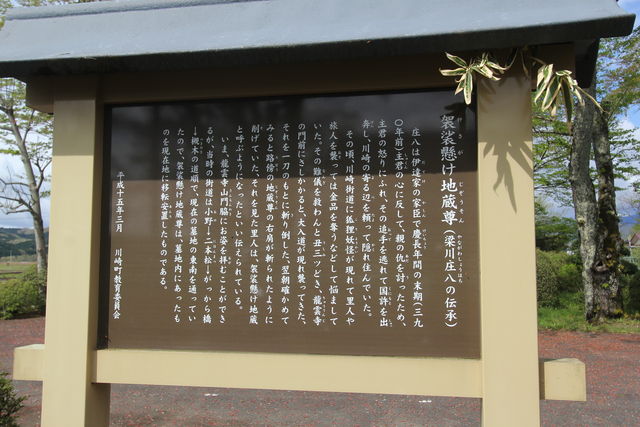 袈裟懸け地蔵尊（梁川庄八の伝承）
庄八は伊達家の家臣で慶長年間の末期（三九
〇年前）主君の心に反して、親の仇を討ったため、
主君の怒りにふれ、その追手を逃れて国許を出
奔し、川崎の寄る辺を頼って隠れ住んでいた。
その頃、川崎街道に狐狸妖怪が現れて里人や
旅人を襲っては金品を奪うなどして悩まして
いた。その難儀を救わんと丑三ツどき、龍雲寺
の門前にさしかかると、大入道が現れ襲ってきた、
それを一刀のもとに斬り倒した。翌朝確かめて
みると路傍の地蔵尊の右肩が斬られたように
削げていた。それを見た里人は、袈裟懸け地蔵
と呼ぶようになったといい伝えられている。
いま、龍雲寺山門脇にお姿を拝むことができ
るが、当時の街道は小野→二本松→がっから橋
→槻木の道順で、現在の墓地の東南を通ってい
たので、袈裟懸け地蔵尊は、墓地内にあったも
のを現在地に移転安置したものである。
平成十五年三月　川崎町教育委員会